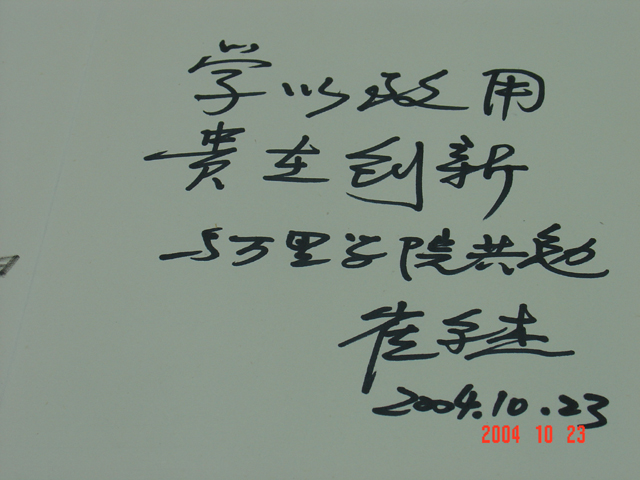 学以致用
贵在创新
与万里学院共勉
崔学杰
2004.10.23
2004 10 23